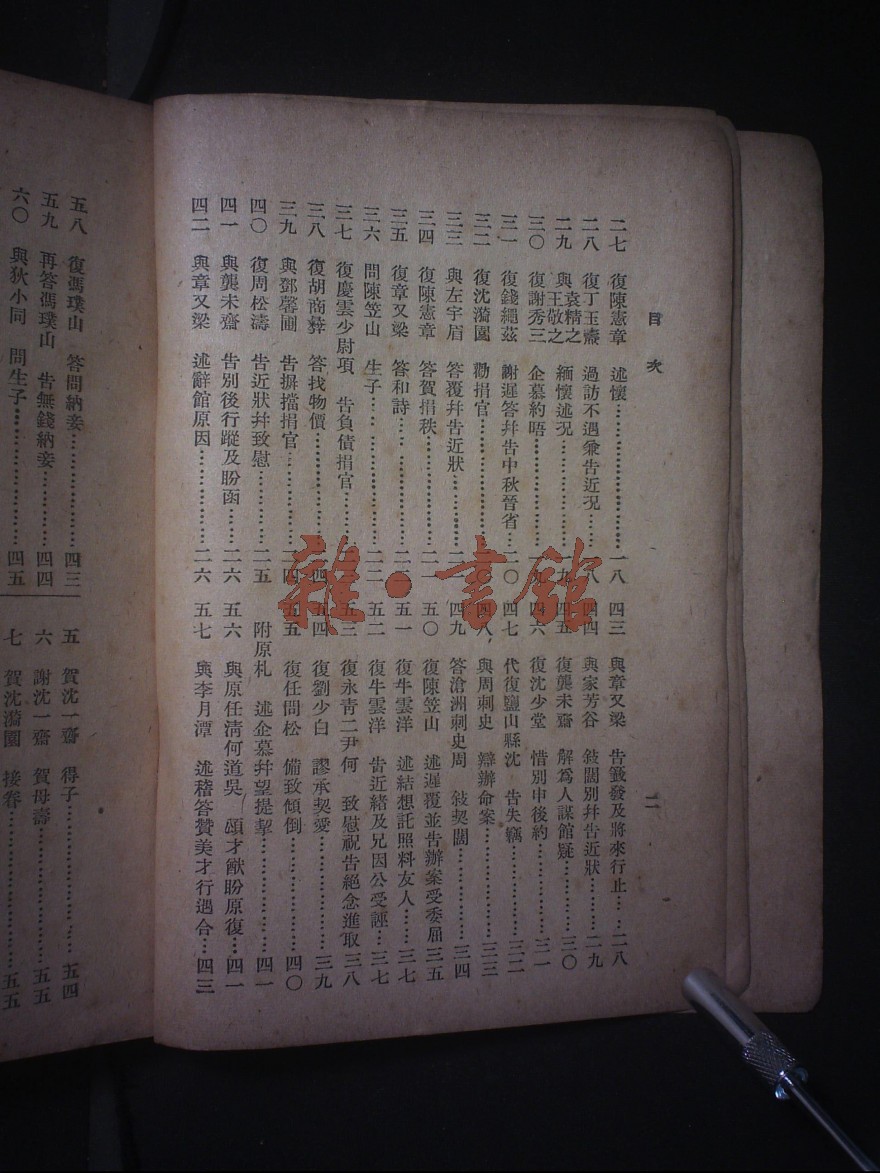 目次
二
二七 復陳憲章 述懷……一八
二八 復丁玉齋 過訪不遇兼告近况……一八
二九 與袁精之王敬之 緬懷述况……一九
三〇 復謝秀三 企慕約唔……一九
三一 復錢繩茲 謝遲答幷告中秋晉省…二〇
三二 復沈漪園 勸捐官……二〇
三三 與左宇眉 答覆幷告近狀……二一
三四 復陳憲章 答賀捐秩……二一
三五 復章又梁 答和詩……二二
三六 問陳笠山 生子……二二
三七 復慶雲少尉項 告負債捐官……
三八 復胡商彝 答找物價……二四
三九 與鄧馨圃 告摒擋捐官……二四
四〇 復周松濤 告近狀幷致慰……二五
四一 與龔未齋 告別後行蹤及盼函……二六
四二 與章又梁 述辭館原因……二六
四三 與章又梁 告籤發及將來行止……二八
四四 與家芳谷 敍闊別幷告近狀……二九
四五 復龔未齋 解爲人謀館疑……三〇
四六 復沈少堂 惜別申後約……三一
四七 代復鹽山縣沈 告失竊……三二
四八 與周刺史 辯辦命案……三三
四九 答滄洲刺史周 敍契闊……三四
五〇 復陳笠山 述遲覆並告辦案受委屈……三五
五一 復牛雲洋 述結想託照料友人……三七
五二 復牛雲洋 告近緒及兄因公受誣…三七
五三 復永青二尹何 致慰祝告絕念進取 三八
五四 復劉少白 謬承契愛……三九
五五 復任問松 備致傾倒……四〇
附原札 述企慕幷望提挈……四一
五六 與原任淸何道吳 頌才猷盼原復…四一
五七 與李月潭 述稽答贊美才行遇合…四三
五八 復馮璞山 答問納妾……四三
五九 再答馮璞山 告無錢納妾……四四
六〇 與狄小同 問生子……四五
五 賀沈一齋 得子……五四
六 謝沈一齋 賀母壽……五五
七 賀沈漪園 接眷……五五
雜·書館